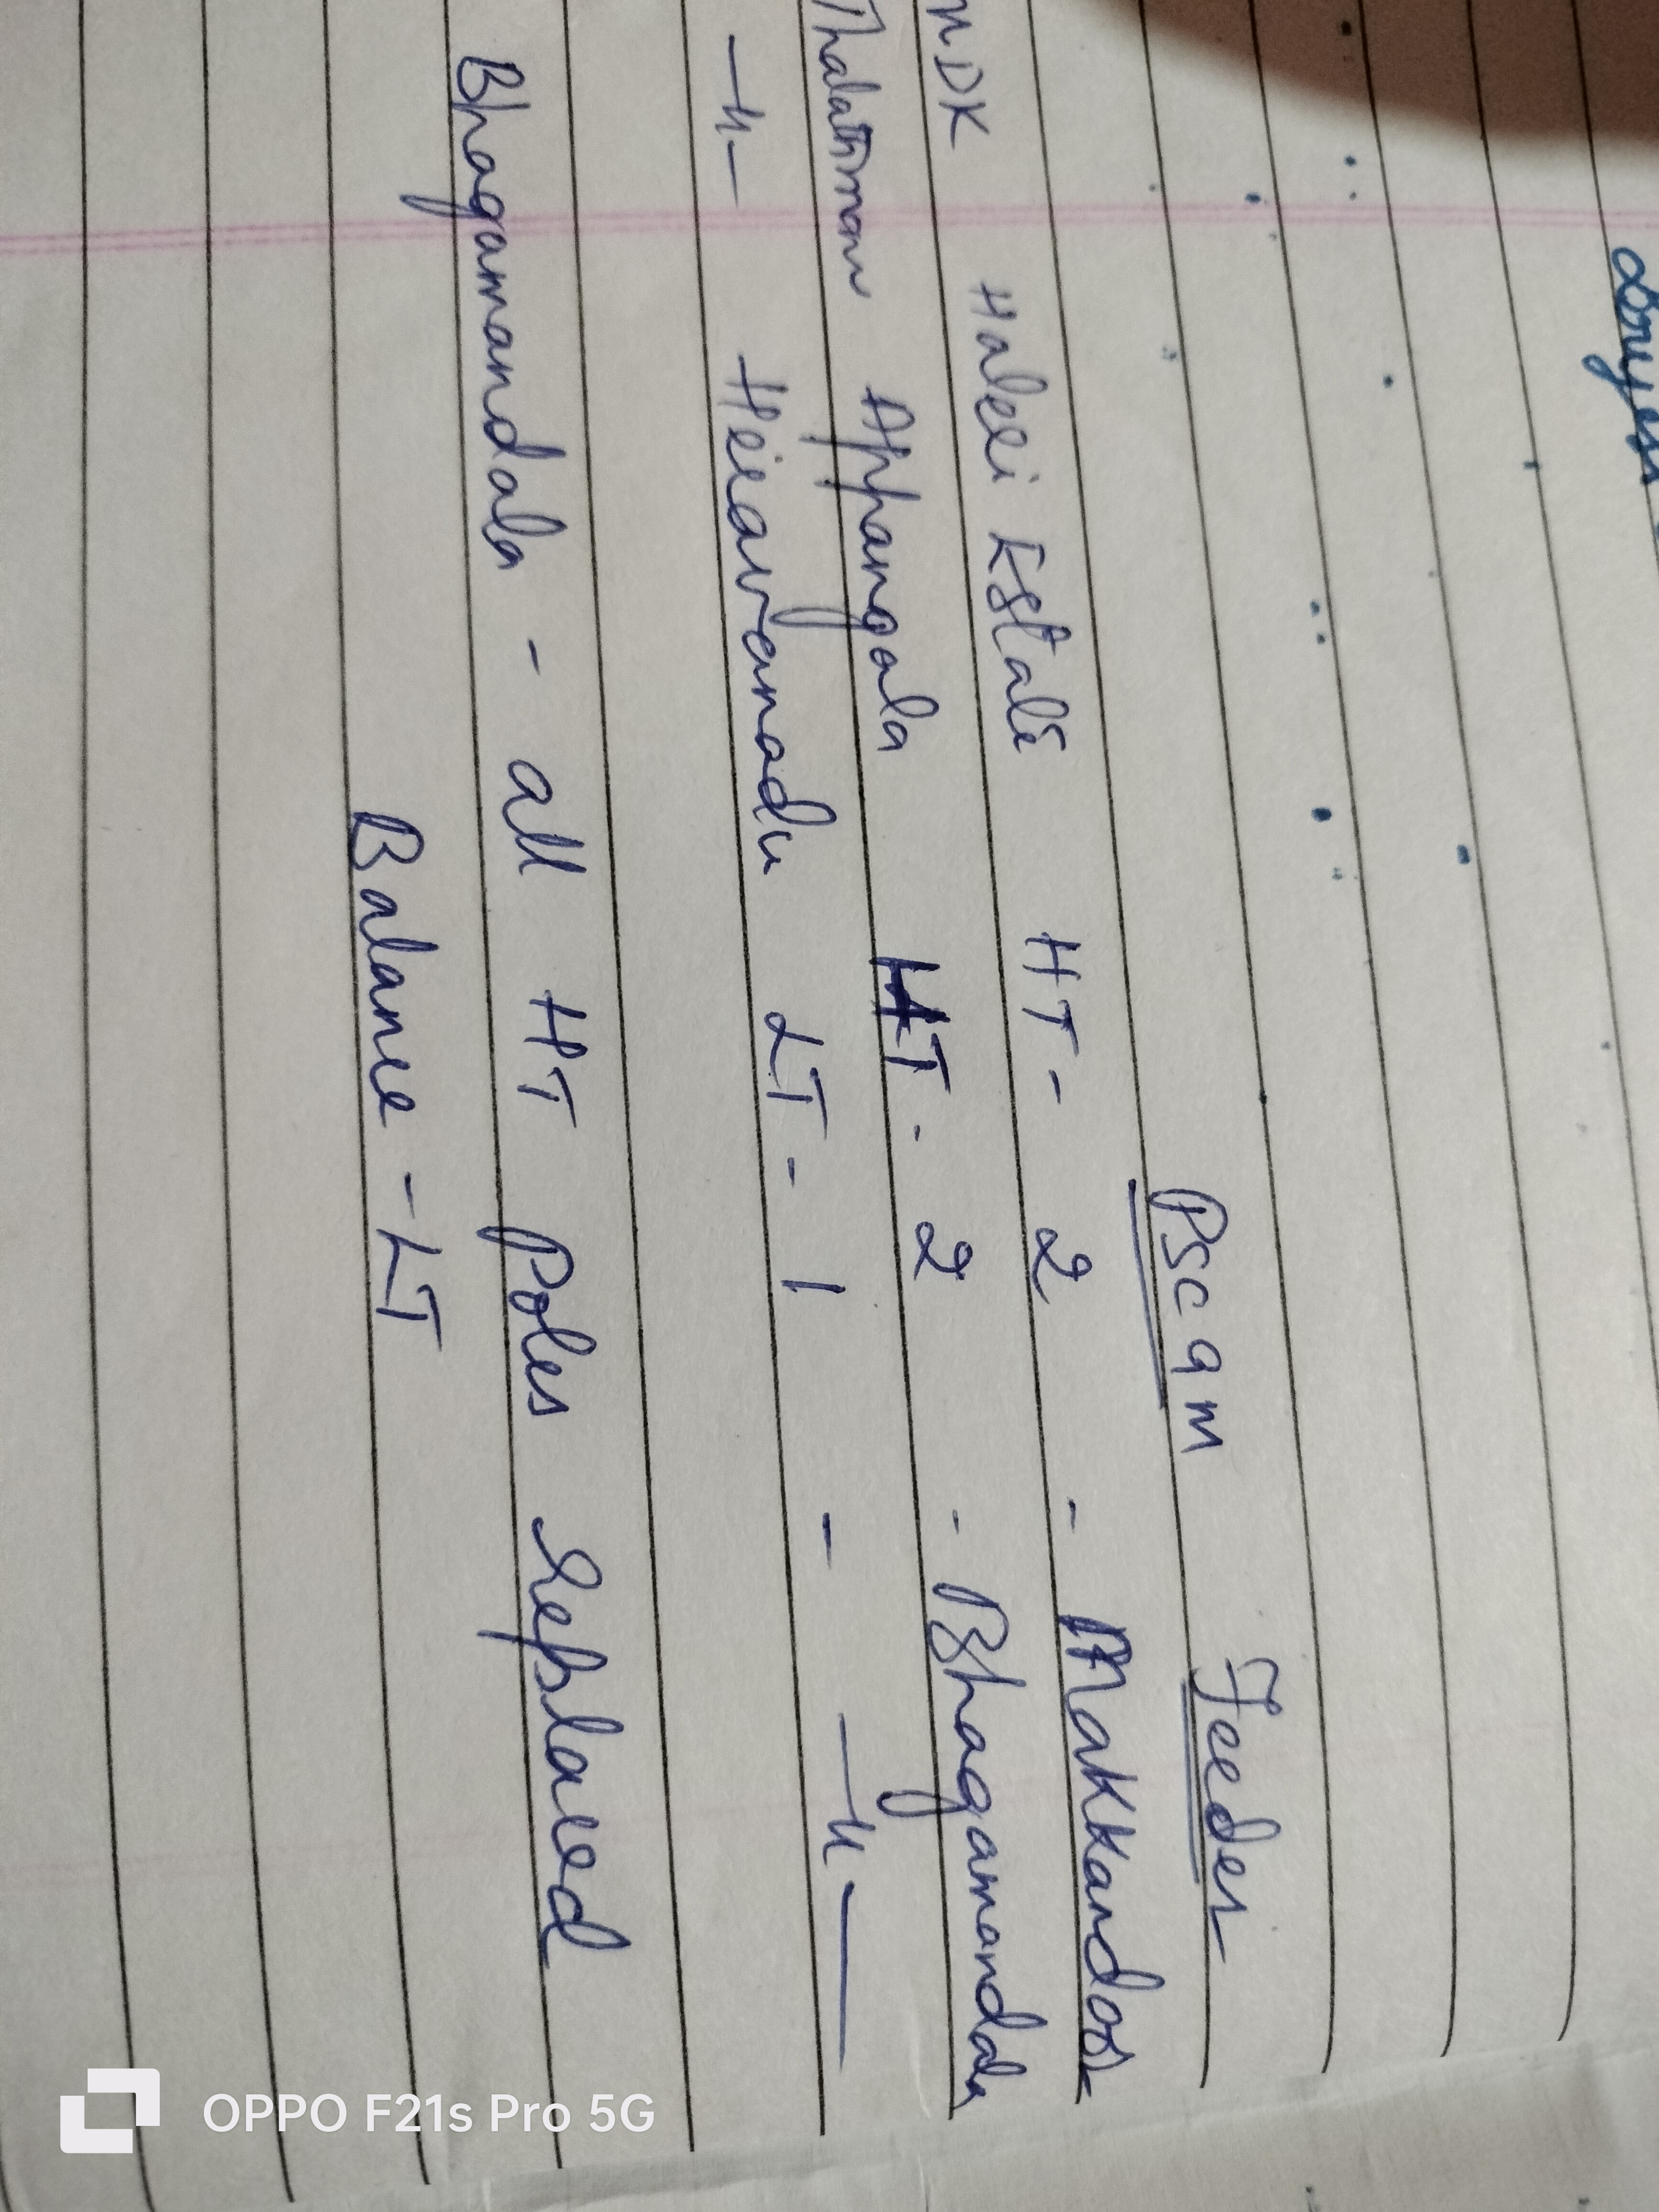 Pscqm Feeder
MDK Haleri Estate HT - 2 - Makkandoor
Thalathmane Appangala HT - 2 - Bhagamandala
—"— Heravanadu LT - 1 - —"—
Bhagamandala - all HT Poles replaced
Balance - LT
OPPO F21s Pro 5G